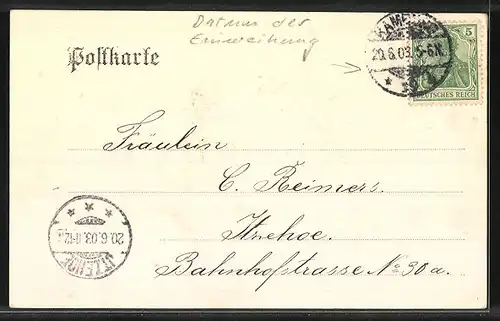 Datum der
Einweihung
Postkarte
20.6.03. 5-6N.
5
DEUTSCHES REICH
Fräulein
C. Reimers.
Itzehoe.
Bahnhofstrasse No 30a.
20.6.03. 11-12
ITZEHOE